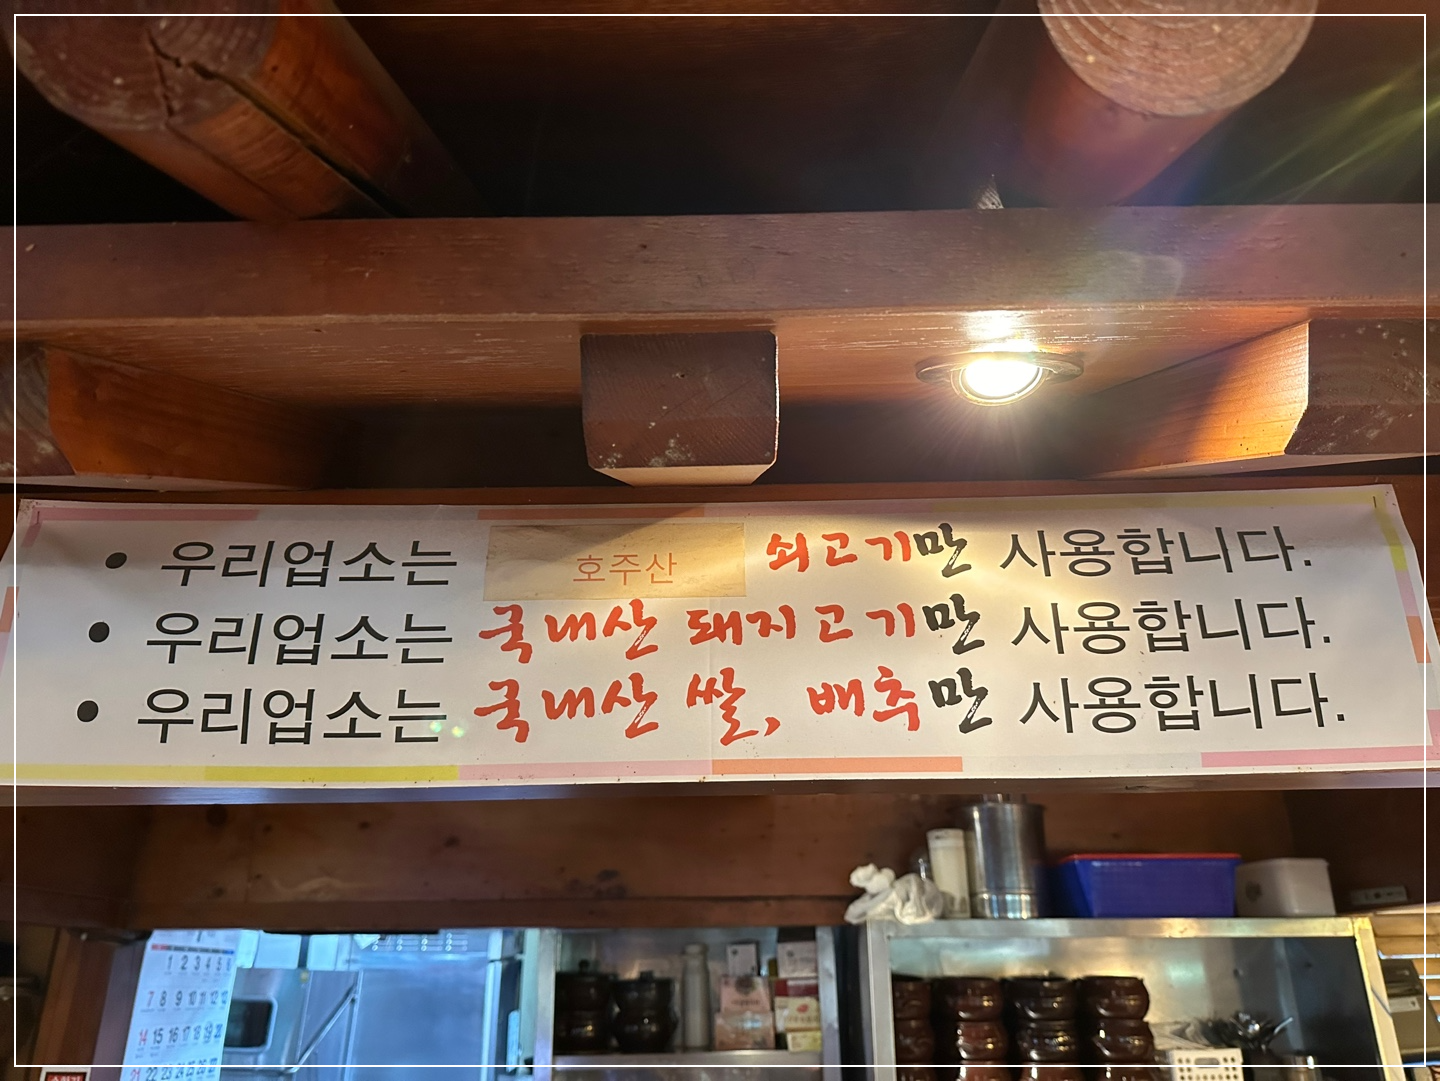 • 우리업소는 호주산 쇠고기만 사용합니다.
• 우리업소는 국내산 돼지고기만 사용합니다.
• 우리업소는 국내산 쌀, 배추만 사용합니다.
1 2 3 4 5 6
7 8 9 10 11 12 13
14 15 16 17 18 19 20
21 22 23 24 25 26 27